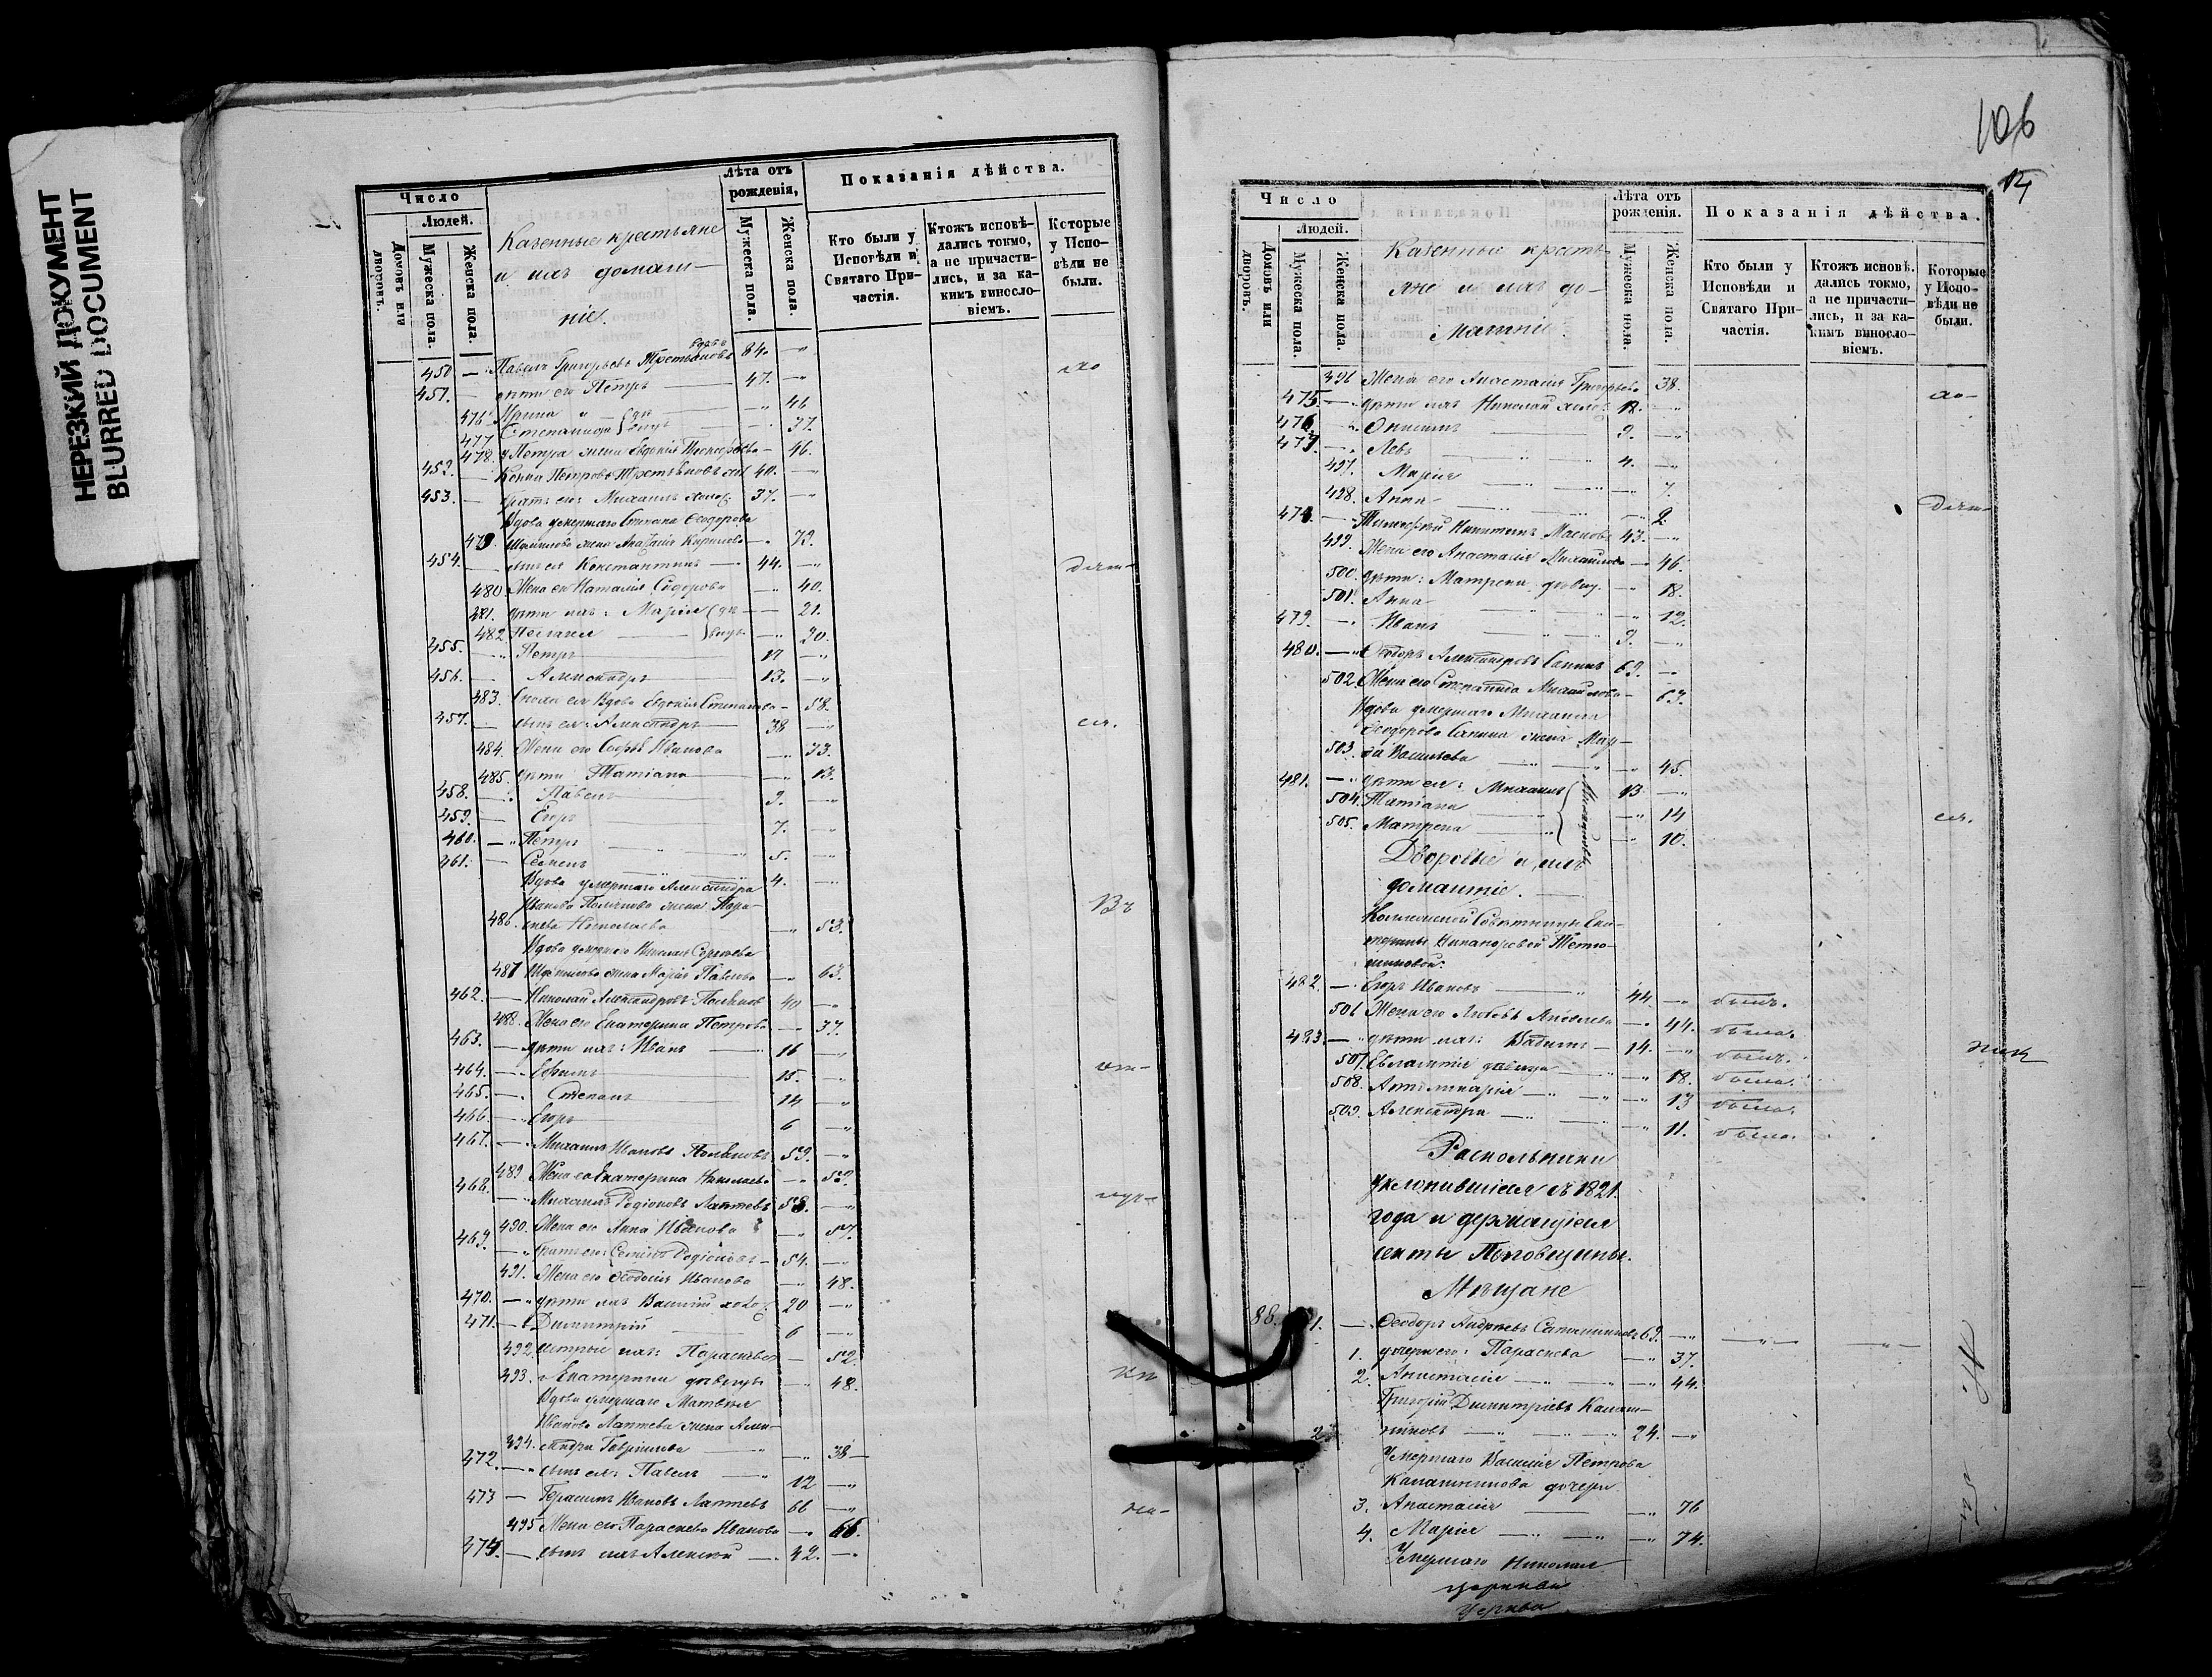 НЕРЕЗКИЙ ДОКУМЕНТ
BLURRED DOCUMENT
Число
Людей.
Домовъ или дворовъ.
Мужеска пола.
Женска пола.
Казенные крестьяне
и ихъ домаш-
ніе.
Лѣта отъ рожденія,
Мужеска пола.
Женска пола.
Показанія дѣйства.
Кто были у Исповѣди и Святаго Причастія.
Ктожъ исповѣ-
дались токмо,
а не причасти-
лись, и за ка-
кимъ виносло-
віемъ.
Которые
у Испо-
вѣди не
были.
вдовъ
450 — Павелъ Григорьевъ 84. —"
451. — дѣти его Петръ — 47. —"
476 Ирина " — —" 46
477 Степанида —" 37.
478. у Петра жена Евдокія — 46.
452. — Петровъ 40. —"
453. — братъ его: Михаилъ холос. 37. —"
Вдова умершаго Степана Ѳеодорова
479. жена Анастасія Кирилова — 72.
454. — сынъ ея Константинъ — 44. —"
480 Жена его Наталія Сидорова —" 40.
481. дѣти ихъ: Марія — 21.
482 Пелагея —" 20.
455. —" Петръ 17 —"
456. — Александръ 13. —"
483. Вдова Евдокія Степанова — 58.
457. — сынъ ея: Александръ 38 —"
484. Жена его Софья Иванова —" 33.
485. дѣти Татіана —" 13.
458. — Павелъ 9. —"
459. — Егоръ 7. —"
460. —" Петръ 5. —"
461. — Семенъ 4. —"
Вдова умершаго Александра
Иванова жена Пара-
486. скева Николаева —" 53.
Вдова Николая Сергѣева
487 жена Марія Павлова —" 63.
462. — Николай Александровъ 40 —"
488. Жена его Екатерина Петрова —" 37.
463. — дѣти ихъ: Иванъ 16 —"
464. — Ефимъ 15. —"
465. — Степанъ 14 —"
466. — Егоръ 6 —"
467. — Михаилъ Ивановъ 59. —"
489 Жена его Екатерина Николаева —" 59.
468. —" Михаилъ Родіоновъ Лаптевъ 58. —"
490. Жена его Анна Иванова —" 57.
469. —" братъ его: Семенъ Родіоновъ — 54. —"
491. Жена его Ѳеодосія Иванова —" 48.
470. —" дѣти ихъ Василій холос. 20 —"
471. — Димитрій 6 —"
492. сестры ихъ: Параскева — 52.
493. Екатерина дѣвицы — 48.
Вдова умершаго Матвѣя
Иванова Лаптева жена Алек-
494. сандра Гаврилова —" 38 —
472. —" сынъ ея: Павелъ 12 —"
473 — Герасимъ Ивановъ Лаптевъ 66 —"
495 Жена его Параскева Иванова — 66.
474. — сынъ ихъ Алексѣй — 42. —"
106
Число
Людей.
Домовъ или дворовъ.
Мужеска пола.
Женска пола.
Казенные кресть-
яне и ихъ до-
машніе.
Лѣта отъ рожденія.
Мужеска пола.
Женска пола.
Показанія дѣйства.
Кто были у
Исповѣди и
Святаго При-
частія.
Ктожъ исповѣ-
дались токмо,
а не причасти-
лись, и за ка-
кимъ виносло-
віемъ.
Которые
у Испо-
вѣди не
были.
496 Жена его Анастасія Григорьева 38.
475. — дѣти ихъ Николай холос. 18. —"
476. — Онисимъ 9. —"
477. — Левъ 4. —"
497. Марія —" 7.
498. Анна —" 2.
478. — Тимоѳей Никитинъ 43. —"
499. Жена его Анастасія Михайлова — 46.
500. дѣти: Матрена дѣвиц. —" 18.
501. Анна —" 12.
479. — Иванъ 9. —"
480. — Ѳеодоръ Александровъ Санинъ 69. —
502. Жена его Степанида Михайлова — 63.
Вдова умершаго Михаила
Ѳеодорова Санина жена Мар-
503. ѳа Васильева —" 45.
481. —" дѣти ея: Михаилъ 13 —"
504. Татіана —" 14
505. Матрена —" 10.
Дворовые и ихъ
домашніе.
Коллежской Совѣтницы Ека-
терины Никаноровой
482. — Егоръ Ивановъ 44. —" былъ.
506 Жена его Любовь Яковлева — 44. была.
483. —" дѣти ихъ: Вадимъ — 14. —" былъ.
507. Евлампія дѣвица —" 18. была.
508. Апполинарія —" 13 была.
509. Александра —" 11. была.
Раскольники
уклонившіеся съ 1821.
года и держащіеся
секты Поповщины.
Мѣщане
88. 1. — Ѳеодоръ Андреевъ 69. —"
1. дочери его: Параскева —" 37.
2. Анастасія —" 44.
Григорій Димитріевъ Калаш-
2. никовъ 24. —"
Умершаго Василія Петрова
Калашникова дочери
3. Анастасія —" 76
4. Марія —" 74.
Умершаго Николая